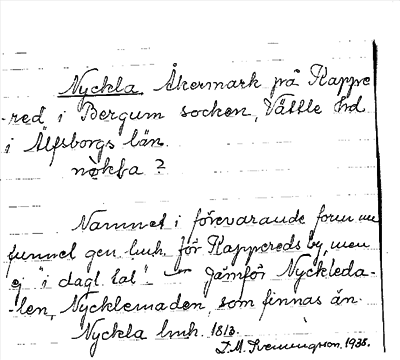 Nyckla Åkermark på Kappe
-red i Bergum socken, Vättle hd
i Älfsborgs län.
nỳkla ?
Namnet i förevarande form
funnet gen. lmh. för Kappereds by, men
ej "i dagl. tal". — Jämför Nyckleda-
-len, Nycklemaden, som finnas än.
Nyckla lmh. 1813.
J.M. Svenningson. 1938.